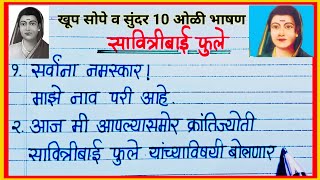 खूप सोपे व सुंदर 10 ओळी भाषण
सावित्रीबाई फुले
१. सर्वांना नमस्कार!
माझे नाव परी आहे.
२. आज मी आपल्यासमोर क्रांतिज्योती
सावित्रीबाई फुले यांच्याविषयी बोलणार